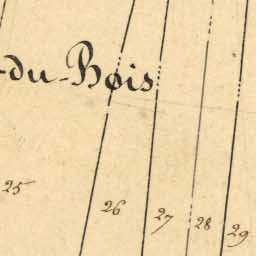 -du-Bois
25 26 27 28 29